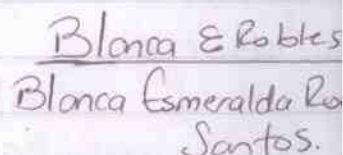 Blanca E Robles
Blanca Esmeralda Ro
Santos.